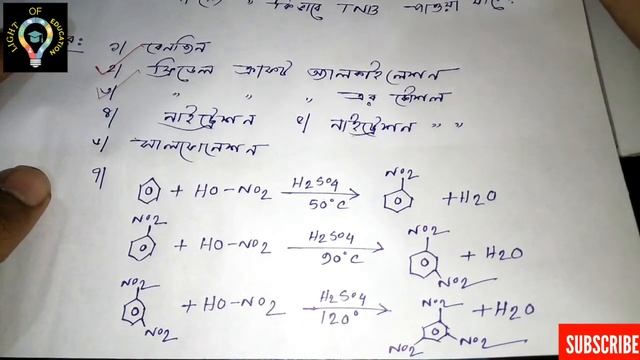 LIGHT OF EDUCATION
TNB পাওয়া যায়?
১) বেনজিন
২) ফ্রিডেল ক্রাফট অ্যালকাইলেশন
৩) " " " এর কৌশল
৪) নাইট্রেশন ৫) নাইট্রেশন " "
৬) সালফোনেশন
৭)
+ HO-NO2 H2SO4 50°C NO2 + H2O
NO2 + HO-NO2 H2SO4 90°C NO2 NO2 + H2O
NO2 NO2 + HO-NO2 H2SO4 120° NO2 NO2 NO2 + H2O
SUBSCRIBE